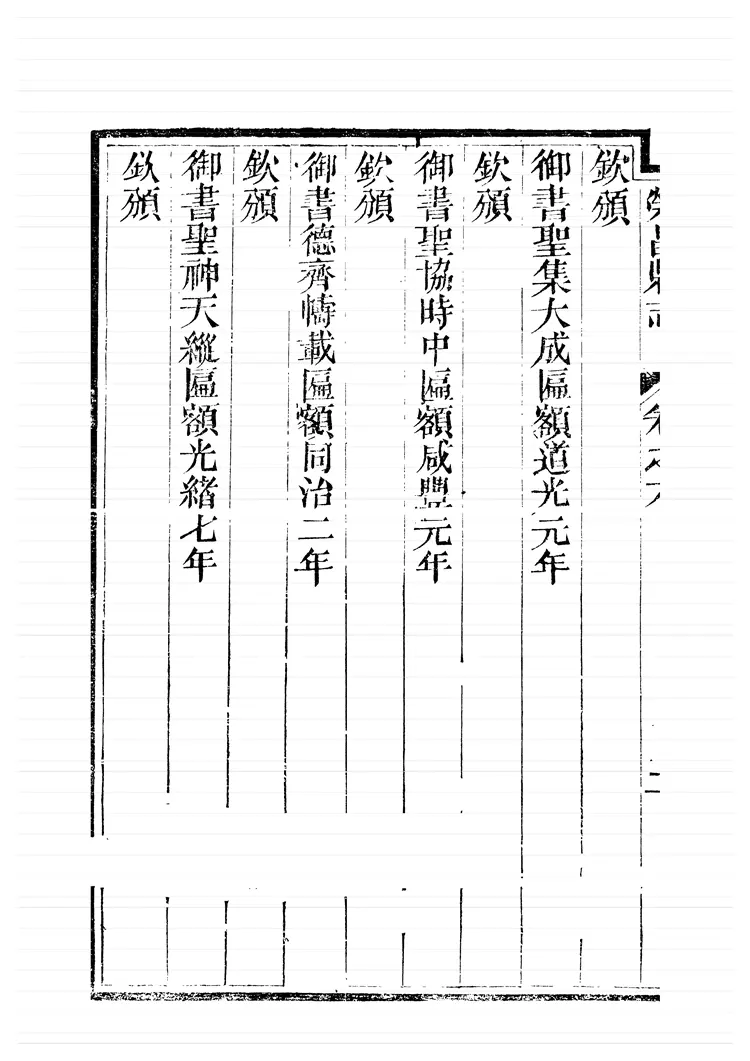 榮昌縣志 卷之 二
欽頒
御書聖集大成匾額道光元年
欽頒
御書聖協時中匾額咸豐元年
欽頒
御書德齊幬載匾額同治二年
欽頒
御書聖神天縱匾額光緒七年
欽頒